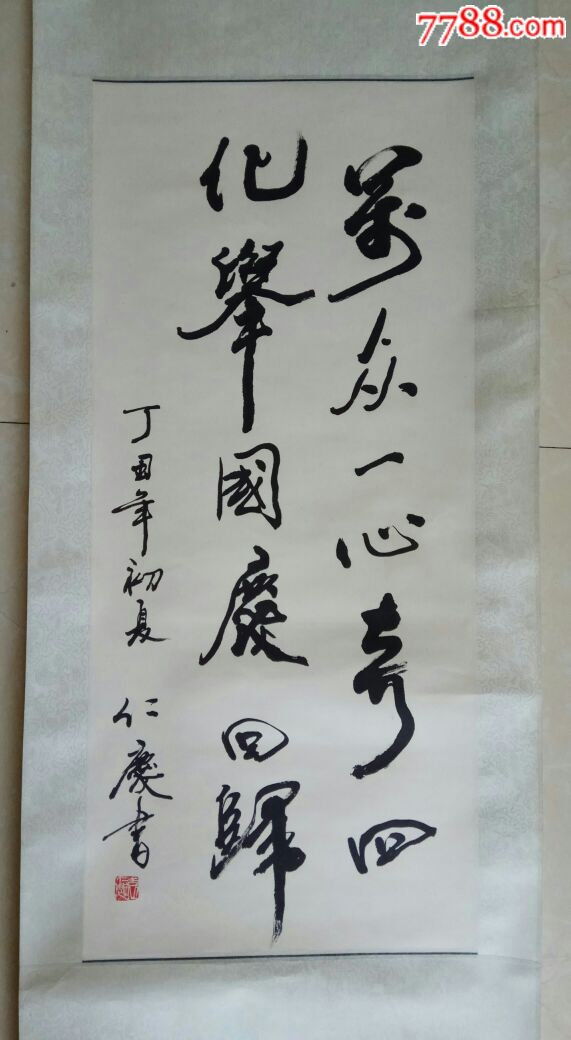 7788.com
萬众一心奔四
化舉國慶回歸
丁丑年初夏 仁慶書